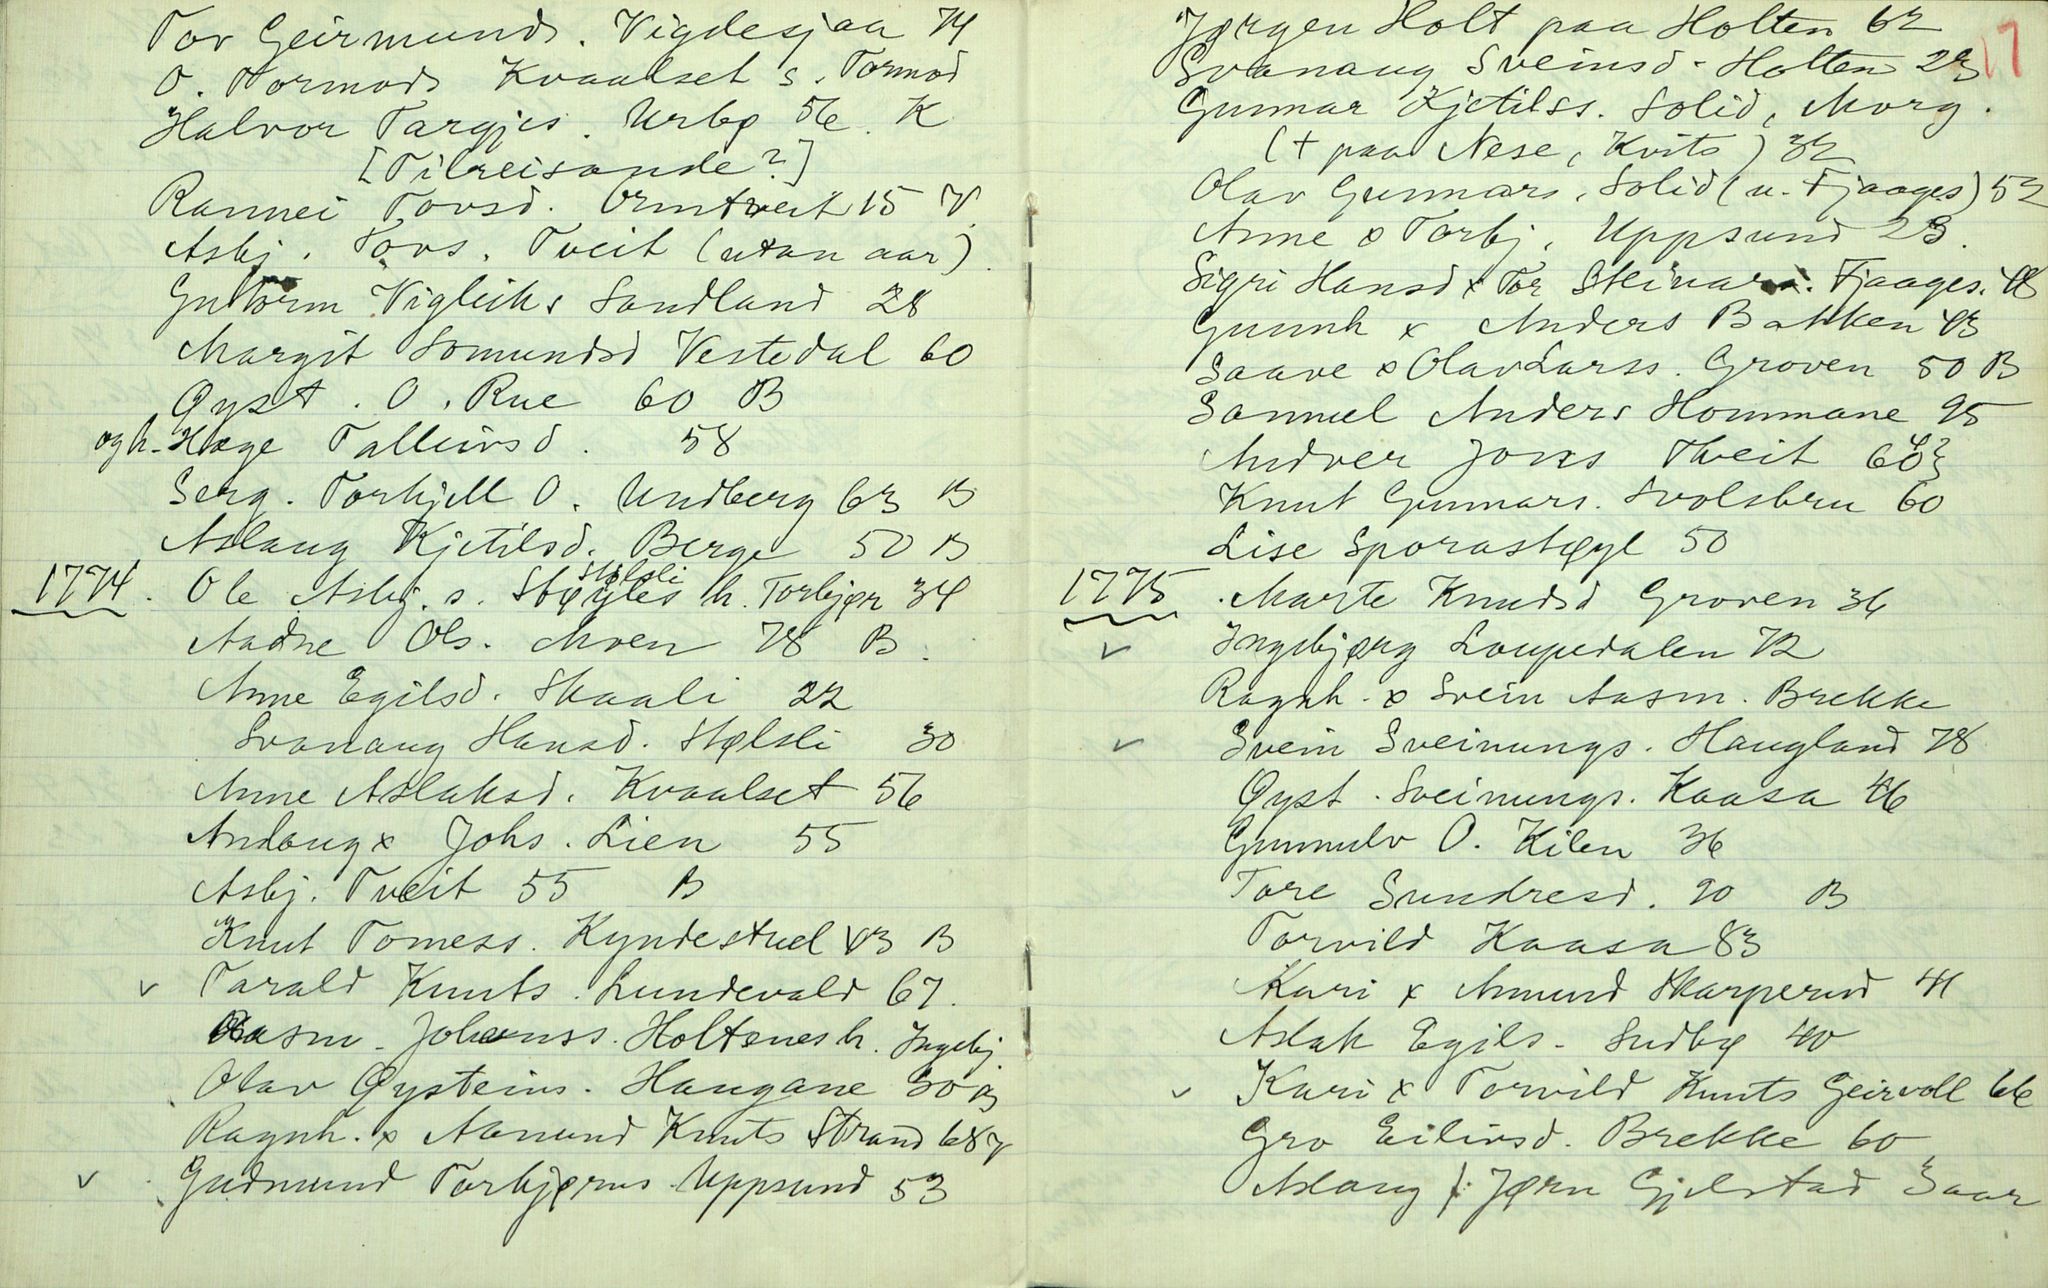 Tov Geirmunds. Vigdesjaa 74
O. Tormods Kvaalset s. Tormod
Halvor Targjes. Urbø 56. K
[Tilreisande?]
Rannei Tovsd. Ormtveit 15 V
Asbj. Tovs. Tveit (utan aar)
Guttorm Vigleiks Sandland 28
Margit Somundsd Vestedal 60
Øyst. O. Rue 60 B
og h. Hæge Talleivsd. 58
Serg. Torkjell O. Undberg 63 B
Aslaug Kjetilsd. Berge 50 B
Stølsli
1774. Ole Asbj. s. Støyles h. Torbjør 34
Aadne Ols. Moen 78 B.
Anne Egilsd. Skaali 22
Svanaug Hansd. Stølsli 30
Anne Aslaksd. Kvaalset 56
Andaug x Johs. Lien 55
Asbj. Tveit 55 B
Knut Tomess. Kyndestuel 43 B
v Tarald Knuts. Lundevald 67.
Aasm. Johanss. Holtenes h. Ingebj.
Olav Øysteins. Haugane 30 B
Ragnh. x Aamund Knuts Strand 68 V
v Gudmund Torbjørns Uppsund 53
17
Jørgen Holt paa Holten 62
Svanaug Sveinsd. Holten 23
Gunnar Kjetilss. Solid, Morg.
(+ paa Nese, Kvits) 32
Olav Gunnars. Solid (u. Fjaages) 52
Anne x Torbj. Uppsund 23.
Sigri Hansd x Tor Steinars. Fjaages. 48
Gunnh x Anders Bakken 43
Saave x Olav Larss. Groven 50 B
Samuel Anders Hommane 95
Andver Jons Tveit
Knut Gunnars. Svolsbru 60
Lise Sporastøyl 50
1775. Marte Knudsd Groven 36
v Ingebjørg Loupedalen 72
Ragnh. x Svein Aasm. Brekke
v Svein Sveinungs. Haugland 78
Øyst. Sveinungs. Kaasa 46
Gunnulv O. Kilen 36
Tore Sundresd. 90 B
Torvild Kaasa 83
Kari x Amund Skarperud 41
Aslak Egils. Sudbø 40
v Kari x Torvild Knuts Geirvoll 66
Gro Eilivsd. Brekke 60
Aslaug Jørn Gjelstad 3 aar